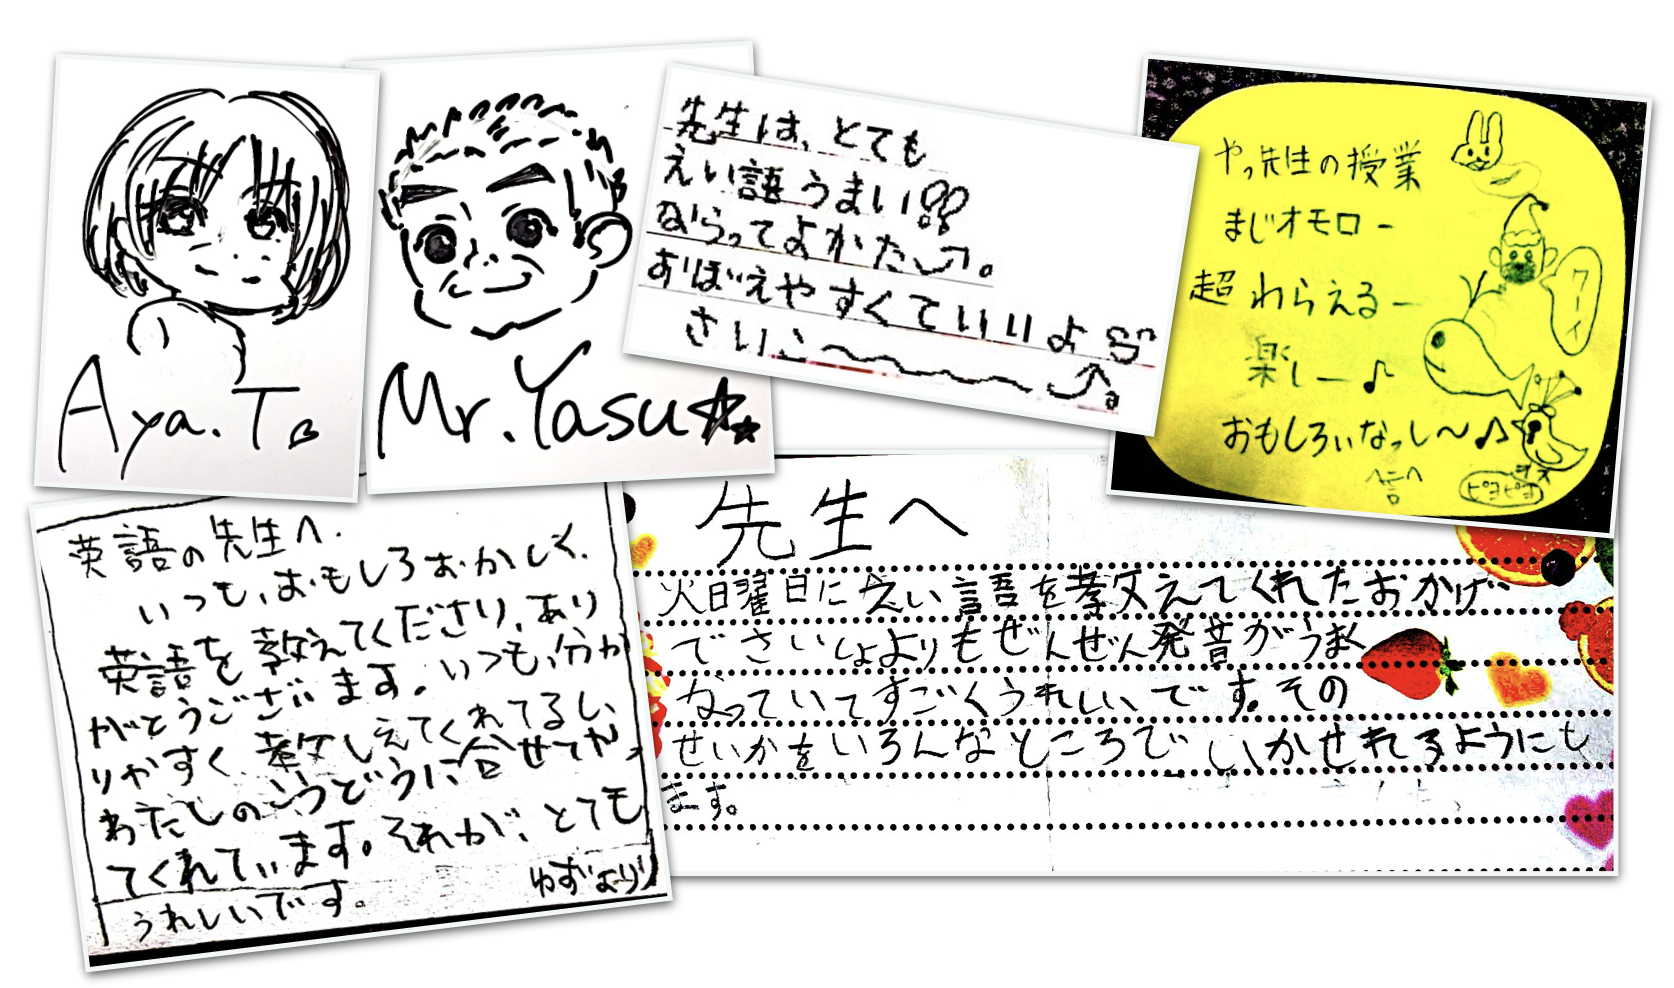 Aya.T
Mr.Yasu
先生は、とても
えい語うまい!!
ならってよかた
おぼえやすくていいよ
さいこ〜
やっ先生の授業
まじオモロー
超わらえるー
楽しー♪
おもしろいなっし〜♪
ワーイ
ピヨピヨ
英語の先生へ.
いつも、おもしろおかしく、
英語を教えてくださり、あり
がとうございます。いつも、分か
りやすく、教しえてくれてるし、
わたしのこうどうに合せてやっ
てくれています。それが、とても
うれしいです。
ゆずおり
先生へ
火日曜日にえい語を教えてくれたおかげ
でさいしょよりもぜんぜん発音がうまく
なっていてすごくうれしいです。その
せいかをいろんなところでいかせれるようにし
ます。